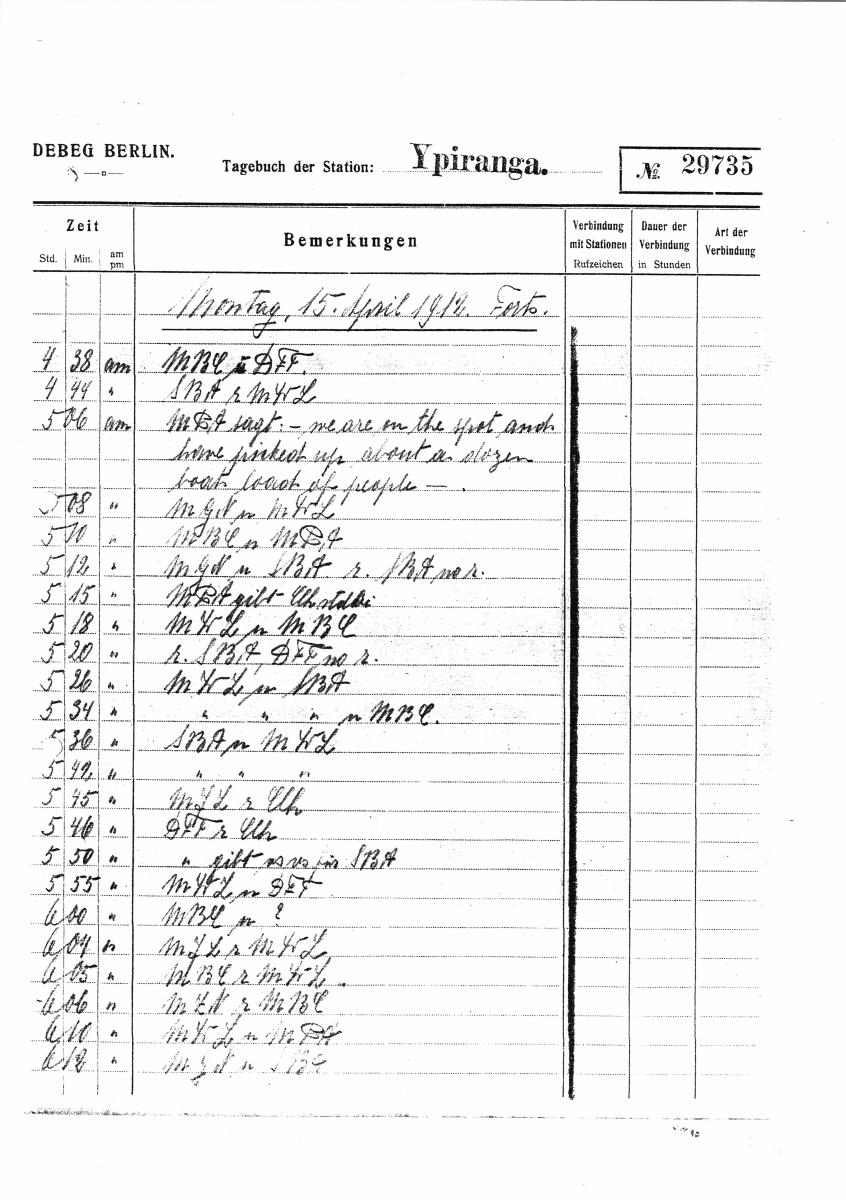 DEBEG BERLIN.
Tagebuch der Station: Ypiranga. № 29735
Zeit Bemerkungen Verbindung mit Stationen Dauer der Verbindung Art der Verbindung
Std. Min. am pm Rufzeichen in Stunden
Montag, 15. April 1912. Forts.
4 38 am MBC u DFT.
4 44 " SBA r MWL
5 06 am MPA sagt: – we are on the spot and
have picked up about a dozen
boats load of people – .
5 08 " MGN u MWL
5 10 " MBC u MPA
5 12 " MGN u SBA r. SBA no r.
5 15 " MPA gibt
5 18 " MWL u MBC
5 20 " r. SBA, DFT no r.
5 26 " MWL u SBA
5 34 " " " " u MBC.
5 36 " SBA u MWL
5 42 " " " "
5 45 " MJL r
5 46 " DFT r
5 50 " " gibt vs vs für SBA
5 55 " MWL u DFT
6 00 " MBC u ?
6 04 " MJL r MWL
6 05 " MBC r MWL .
6 06 " MZN r MBC
6 10 " MWL u MPA
6 12 " MGN u